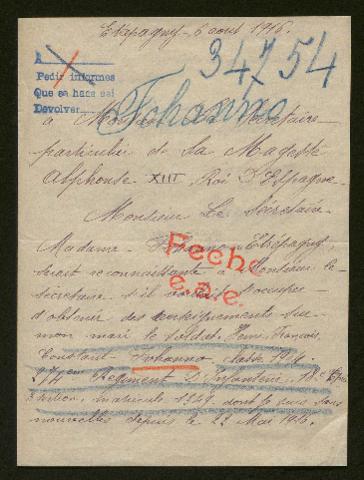 Etrepagny - 6 aout 1916.
34754
A
Pedir informes
Que se hace asi
Devolver
Johanno
a Monsieur le Secrétaire
particulier de Sa Magesté
Alphonse XIII, Roi d'Espagne.
Monsieur Le Secrétaire
Madame Johanno Etrépagny,
serait reconnaissante à Monsieur le
Secrétaire s'il voulait s'occuper
d'obtenir des renseignements sur
mon mari le soldat Henri, François,
Constant Johanno, classe 1914.
Fecha
e.d.e.
Régiment d'Infanterie 18e
matricule 1349 dont je suis sans
nouvelles depuis le 22 Mai 1916.